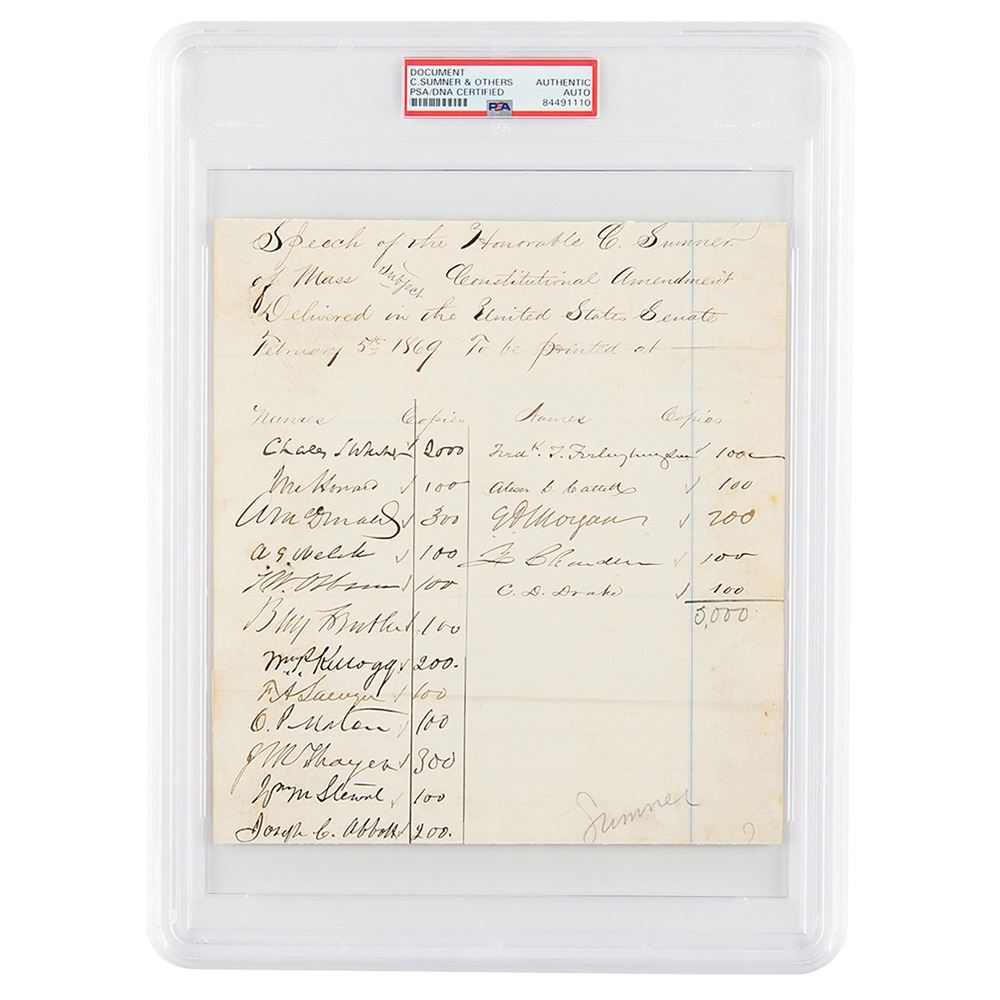 DOCUMENT
C.SUMNER & OTHERS AUTHENTIC
PSA/DNA CERTIFIED AUTO
PSA 84491110
Speech of the Honorable C. Sumner
of Mass subject Constitutional Amendment
Delivered in the United States Senate
February 5th 1869 To be printed at —
Names Copies Names Copies
Charles Sumner 2000 Fredk. T. Frelinghuysen 100
Howard 100 Alex G. Cattell 100
300 E D Morgan 200
A. S. Welch 100 Z Chandler 100
T. W. Osborn 100 C. D. Drake 100
5,000
Benj F Butler 100
Wm P. Kellogg 200.
F. A. Sawyer 100
O. P. Morton 100
J M Thayer 300
Wm M Stewart 100
Joseph C. Abbott 200.
Sumner